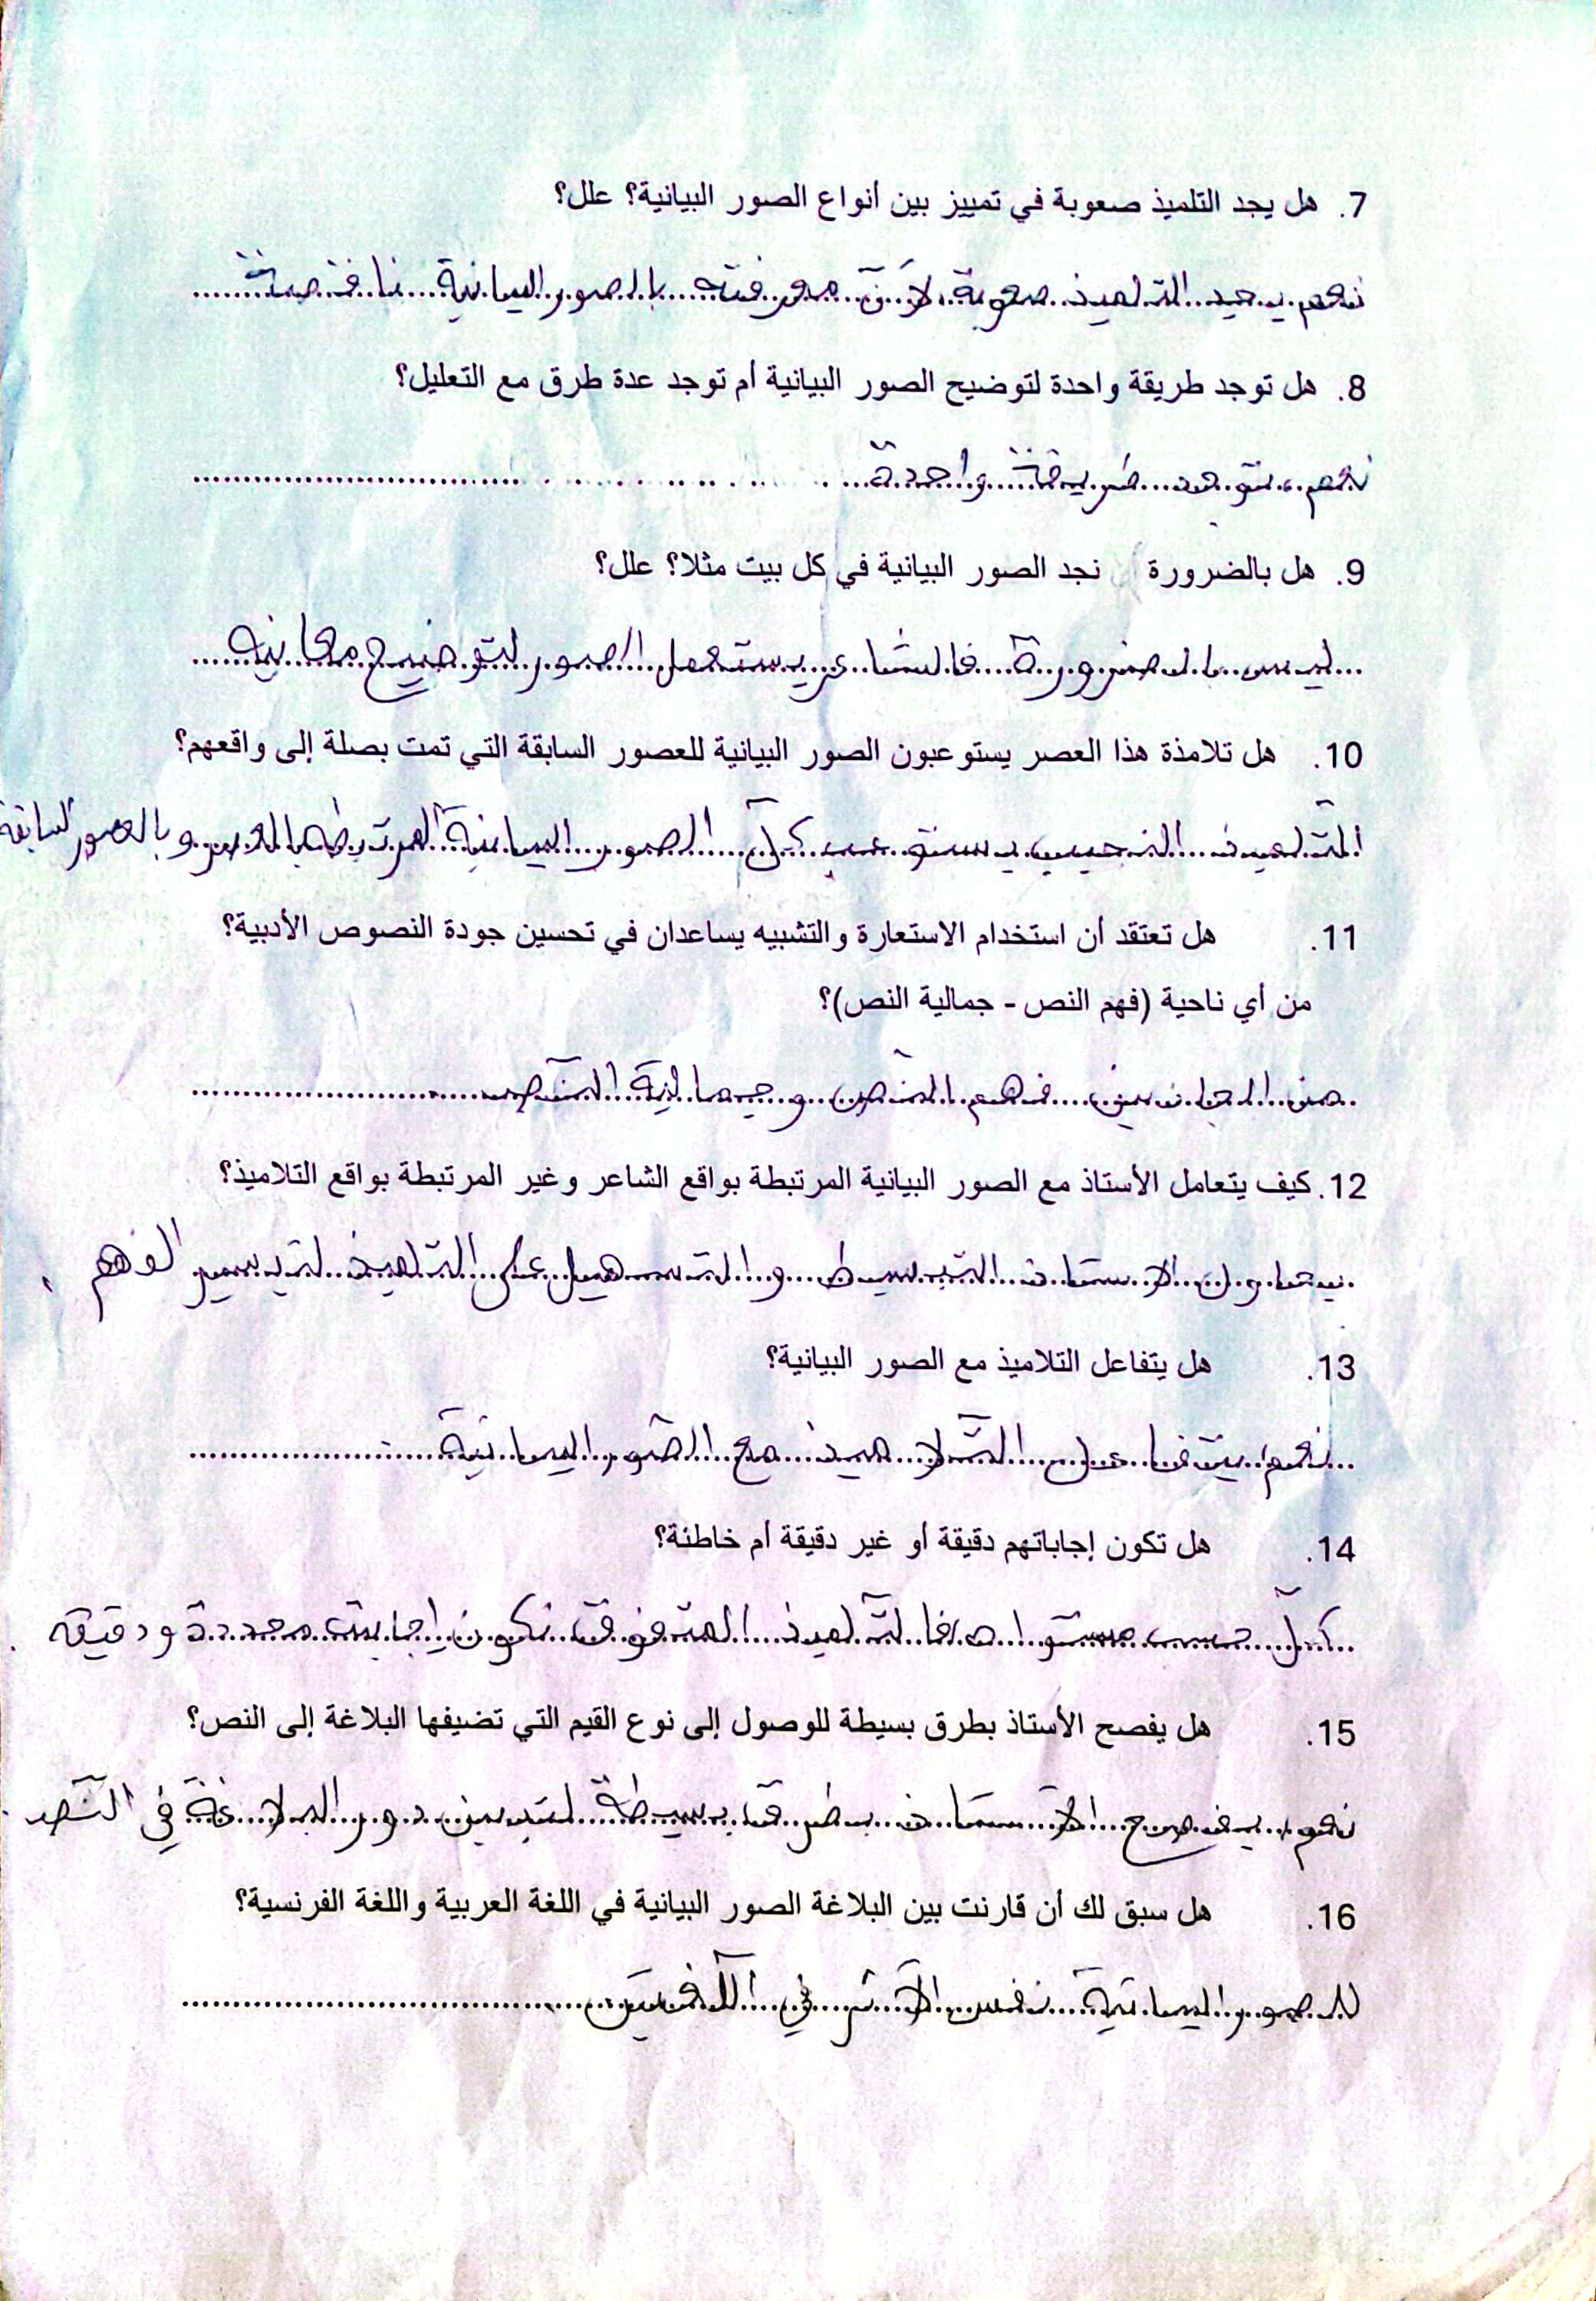 7. هل يجد التلميذ صعوبة في تمييز بين أنواع الصور البيانية؟ علل؟
نعم يجد التلميذ صعوبة لأنّ معرفته بالصور البيانية ناقصة
8. هل توجد طريقة واحدة لتوضيح الصور البيانية أم توجد عدة طرق مع التعليل؟
نعم، توجد طريقة واحدة
9. هل بالضرورة نجد الصور البيانية في كل بيت مثلا؟ علل؟
ليس بالضرورة فالشاعر يستعمل الصور لتوضيح معانيه
10. هل تلامذة هذا العصر يستوعبون الصور البيانية للعصور السابقة التي تمت بصلة إلى واقعهم؟
التّلميذ النجيب يستوعب كلّ الصور البيانية المرتبطة بالعصر وبالعصور السابقة
11. هل تعتقد أن استخدام الاستعارة والتشبيه يساعدان في تحسين جودة النصوص الأدبية؟
من أي ناحية (فهم النص - جمالية النص)؟
من الجانبين فهم النّص وجمالية النّص
12. كيف يتعامل الأستاذ مع الصور البيانية المرتبطة بواقع الشاعر وغير المرتبطة بواقع التلاميذ؟
يحاول الأستاذ التبسيط والتسهيل على التلميذ لتيسير الفهم
13. هل يتفاعل التلاميذ مع الصور البيانية؟
نعم، يتفاعل التّلاميذ مع الصّور البيانيّة
14. هل تكون إجاباتهم دقيقة أو غير دقيقة أم خاطئة؟
كلّ حسب مستواه فالتّلميذ المتفوق تكون إجابته محددة ودقيقة
15. هل يفصح الأستاذ بطرق بسيطة للوصول إلى نوع القيم التي تضيفها البلاغة إلى النص؟
نعم، يفصح الأستاذ بطرق بسيطة لتبيين دور البلاغة في النّص.
16. هل سبق لك أن قارنت بين البلاغة الصور البيانية في اللغة العربية واللغة الفرنسية؟
للصور البيانيّة نفس الأثر في اللّغتين